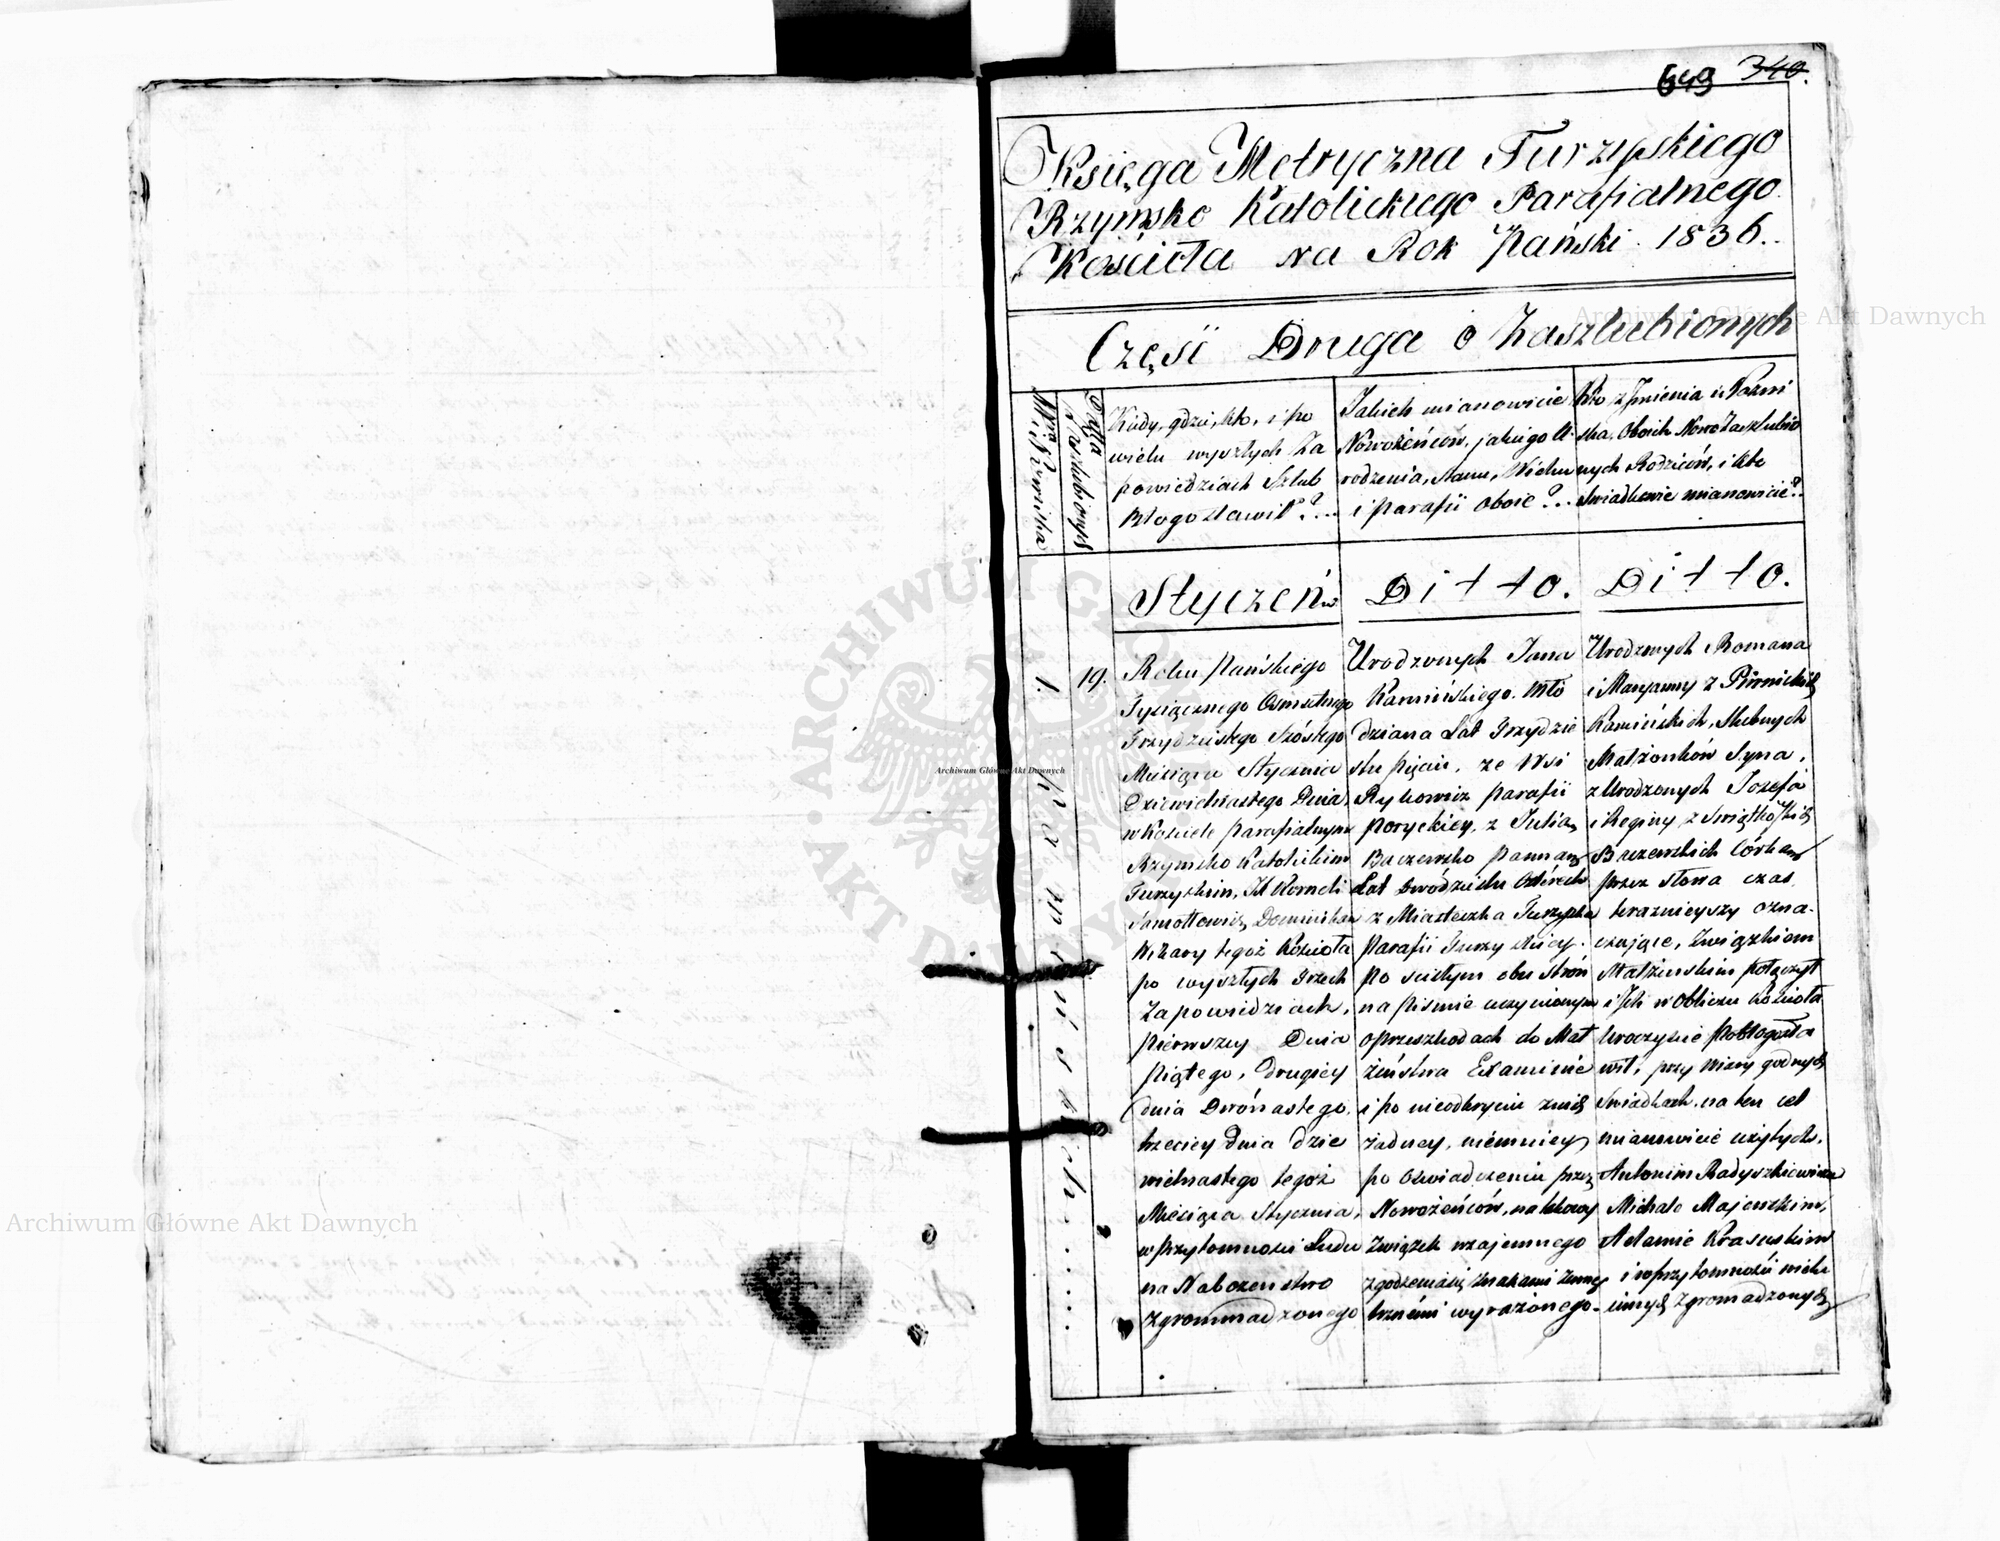 649 340.
Księga Metryczna Turzyskiego
Rzymsko Katolickiego Parafialnego
Kościoła na Rok Pański 1836..
Część Druga o Zaszlubionych
Data Zaszlubionych
Kiedy, gdzie, kto, i po
wielu wyszłych Za
powiedziach Szlub
Błogosławił?...
Jakich mianowicie
Nowożeńców, jakiego U-
rodzenia, stanu, Wieku
i parafii oboie?...
Kto z Imienia i Nazwi
ska, Oboich Nowo Zaszlubio
nych Rodziców, i kto
Swiadkowie mianowicie?..
Styczeń
Ditto.
Ditto.
1.
Kamińskich......
19.
Roku Pańskiego
Tysiącznego Osmsetnego
Trzydziestego Szóstego
Miesiąca Stycznia
Dziewiętnastego Dnia
w Kościele parafialnym
Rzymsko Katolickim
Turzyskim, JX Korneli
Dominikan
Wikary tegoż Kościoła
po wyszłych Trzech
Zapowiedziach,
pierwszey Dnia
Piątego, drugiey
dnia Dwónastego,
trzeciey Dnia dzie
wietnastego tegoż
Miesiąca Stycznia,
w przytomności Ludu
na Nabożenstwo
zgrommadzonego
Urodzonych Jana
Kamińskiego. Mło
dziana Lat Trzydzie
stu pięciu, ze Wsi
parafii
Poryckiey, z Julią
Baczewsko panną
Lat Dwódziestu
z Miasteczka Turzyska
Parafii Turzyskiey.
po scisłym obu stron
na piśmie uczynionym
o przeszkodach do Mał
żeństwa Examinie
i po nieodkryciu
żadney, niemniey
po Oświadczeniu przez
Nowożeńców, na takowy
związek wzajemnego
zgodzenia się znakami zewnę
trznémi wyrażonego-
Urodzonych Romana
i Maryanny z
Kamińskich, Slubnych
Małżonków Syna,
z Urodzonych Józefa
i Reginy z
Baczewskich Córkę
przez słowa czas
teraznieyszy ozna-
czające, Związkiem
Małżenskim połączył
i Ich w Obliczu Kościoła
Uroczyście pobłogosła
wił, przy wiary godnych
Swiadkach, na ten cel
mianowicie użytych,
Antonim Radyszkiewiczu
Michale Majewskim,
Adamie Krasuskim
i w przytomności wielu
innych zgromadzonych
Archiwum Główne Akt Dawnych
Archiwum Główne Akt Dawnych
Archiwum Główne Akt Dawnych
ARCHIWUM GŁÓWNE AKT DAWNYCH